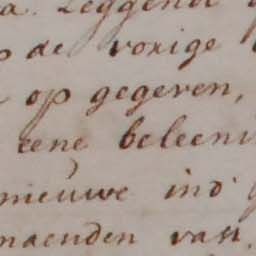 Leggende
de vorige
op gegeven,
eene beleeni
nieuwe ind
maenden van